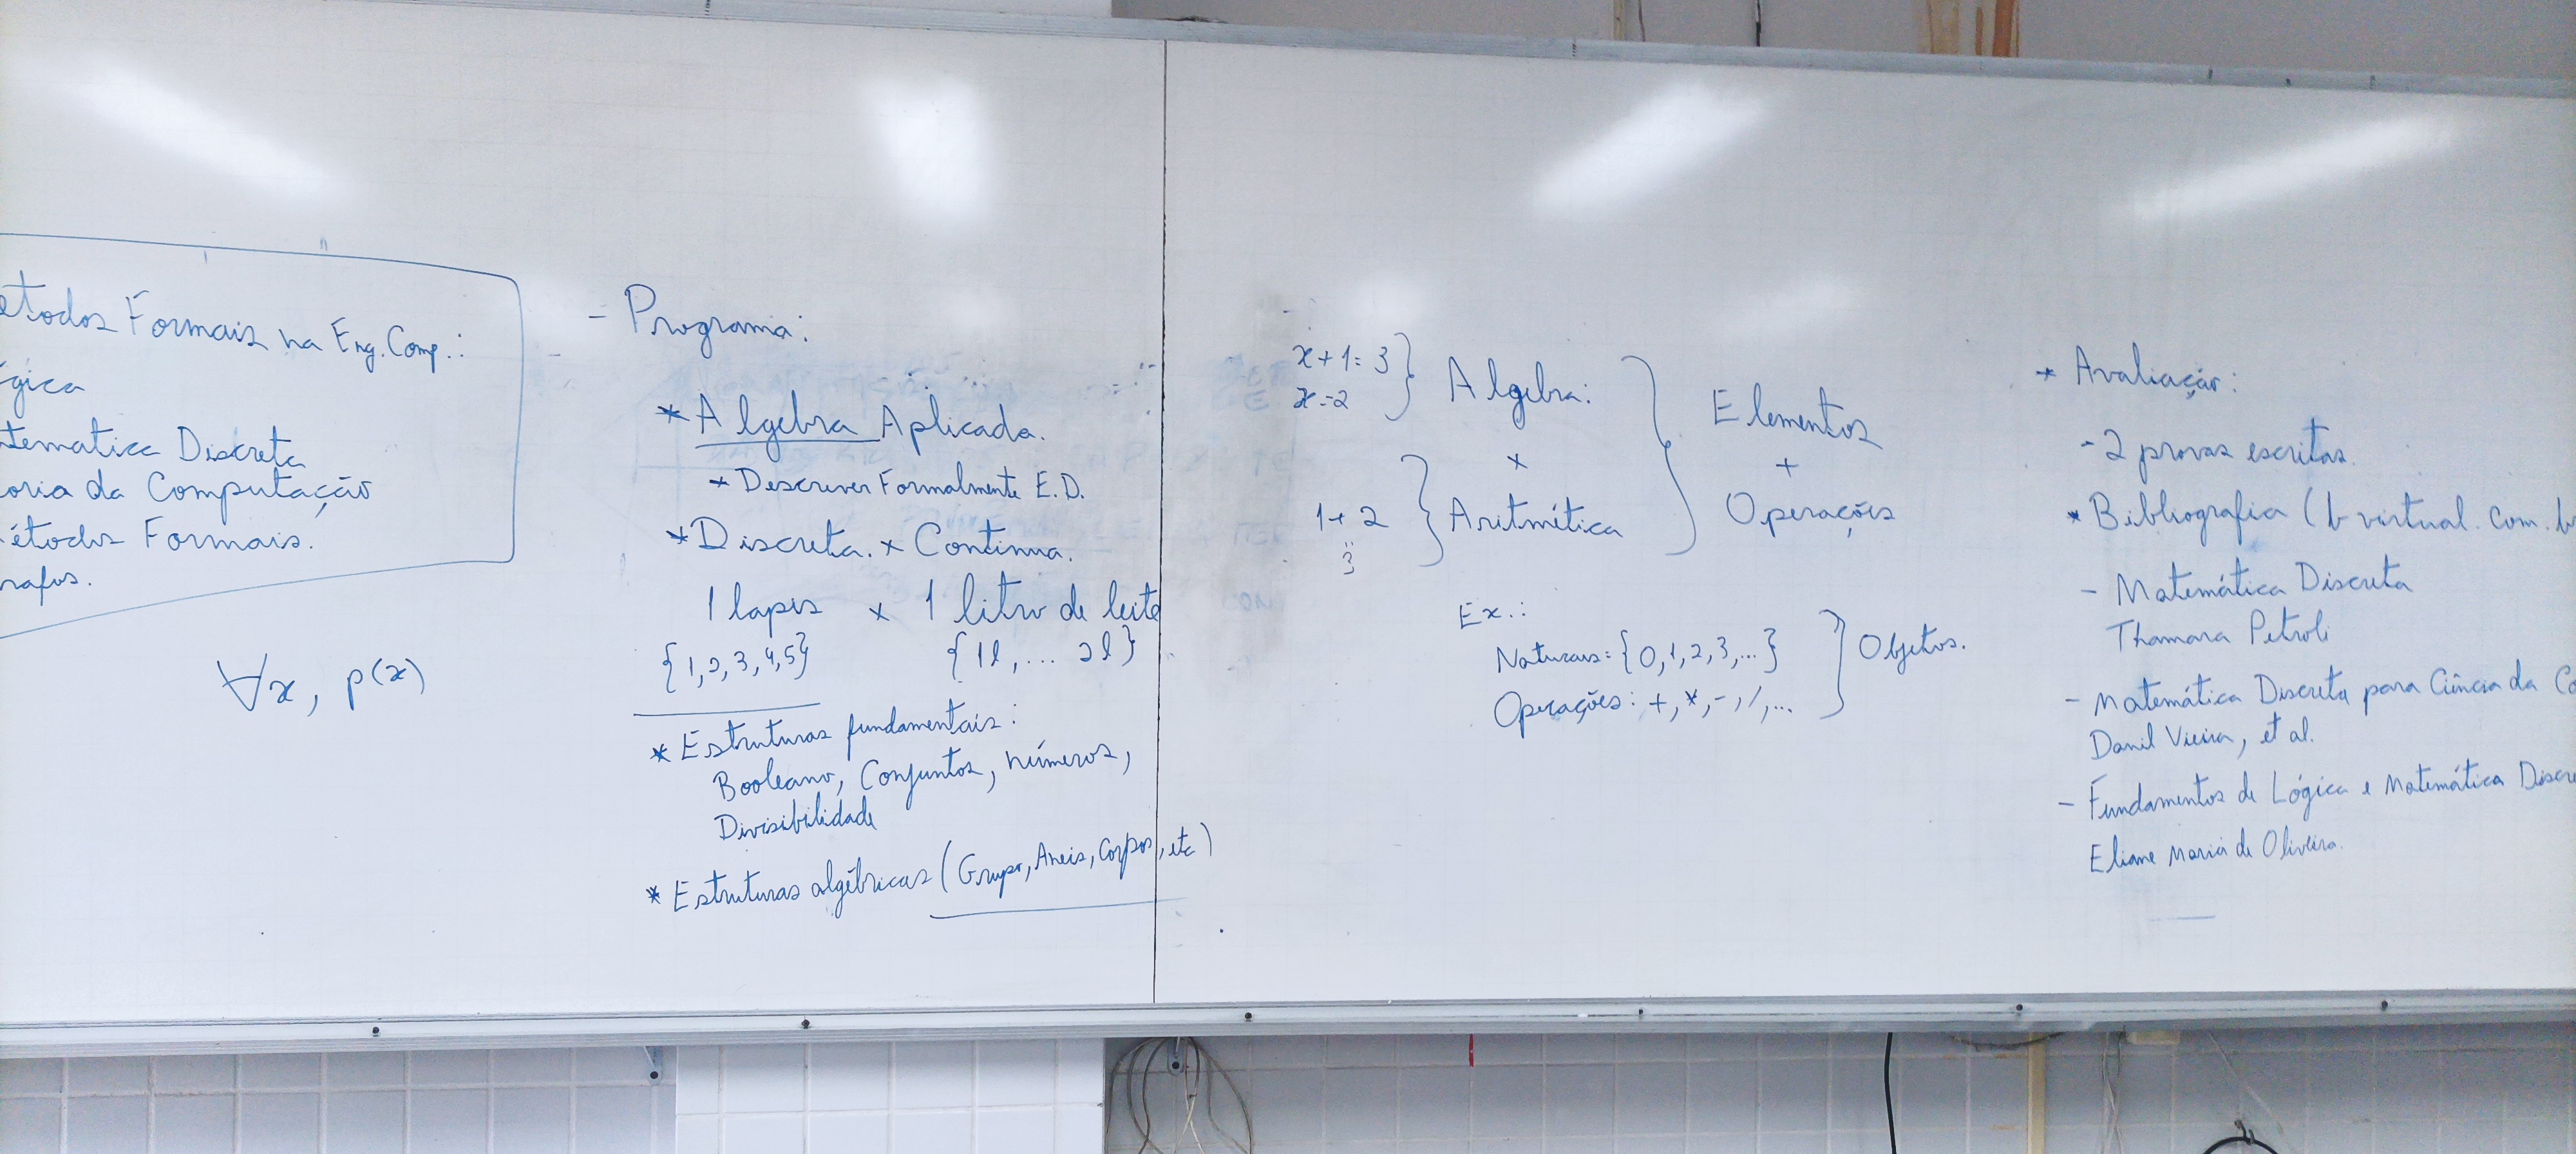 etodos Formais na Eng. Comp.:
gica
tematica Discreta
oria da Computação
étodos Formais.
rafos.
∀x, p(x)
- Programa:
* Algebra Aplicada.
* Descrever Formalmente E.D.
* Discreta. x Continua.
1 lapis x 1 litro de leite
{1,2,3,4,5} {1l, ... 2l}
* Estruturas fundamentais:
Booleano, Conjuntos, números,
Divisibilidade
* Estruturas algébricas (Grupo, Aneis, Corpos, etc)
x+1=3
x=2
Algebra:
x
1+2
=
3
Aritmética
Elementos
+
Operações
Ex.:
Naturais={0,1,2,3,...}
Operações: +,*,-,/,...
Objetos.
* Avaliação:
- 2 provas escritas.
* Bibliografia (bvirtual.com.b
- Matemática Discreta
Thamara Petroli
- Matemática Discreta para Ciência da Co
Danil Vieira, et al.
- Fundamentos de Lógica e Matemática Discre
Eliane Maria de Oliveira.